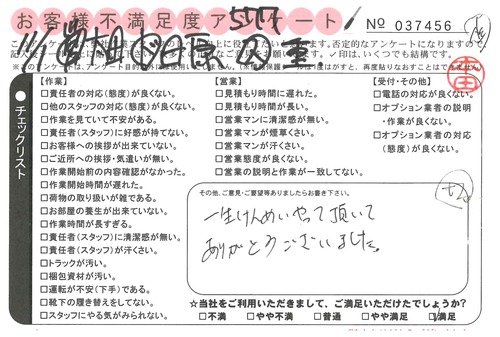 お客様不満足度アンケート
No 037456
【作業】
□責任者の対応(態度)が良くない。
□他のスタッフの対応(態度)が良くない。
□作業を見ていて不安がある。
□責任者(スタッフ)に好感が持てない。
□お客様への挨拶が出来ていない。
□ご近所への挨拶・気遣いが無い。
□作業開始前の内容確認がなかった。
□作業開始時間が遅れた。
□荷物の取り扱いが雑である。
□お部屋の養生が出来ていない。
□作業時間が長すぎる。
□責任者(スタッフ)に清潔感が無い。
□責任者(スタッフ)が汗くさい。
□トラックが汚い。
□梱包資材が汚い。
□運転が不安(下手)である。
□靴下の履き替えをしてない。
□スタッフにやる気がみられない。
【営業】
□見積もり時間に遅れた。
□見積もり時間が長い。
□営業マンに清潔感が無い。
□営業マンが煙草くさい。
□営業マンが汗くさい。
□営業態度が良くない。
□営業の説明と作業が一致してない。
【受付・その他】
□電話の対応が良くない。
□オプション業者の説明
・作業が良くない。
□オプション業者の対応
(態度)が良くない。
チェックリスト
その他、ご意見・ご要望等ありましたらお書き下さい。
一生けんめいやって頂いて
ありがとうございました。
☆当社をご利用いただきまして、ご満足いただけたでしょうか?
□不満 □やや不満 □普通 □やや満足 □満足